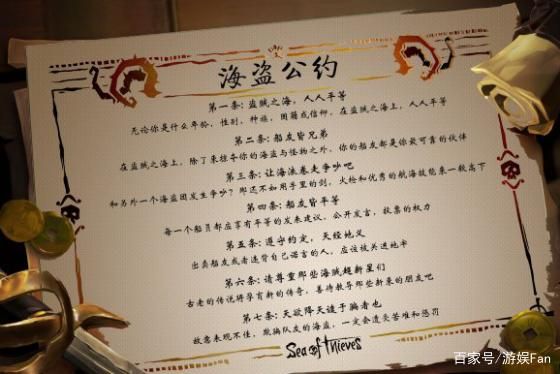 海盗公约
第一条：盗贼之海，人人平等
无论你是什么年龄，性别，种族，国籍或信仰，在盗贼之海上，人人平等
第二条：船友皆兄弟
在盗贼之海上，除了来掠夺你的海盗与怪物之外，你的船友都是你最可靠的伙伴
第三条：让海浪卷走争吵吧
和另外一个海盗团发生争吵？那还不如用手里的剑，火枪和优秀的航海技能来一较高下
第四条：船友皆平等
每一个船员都应享有平等的发表建议，公开发言，投票的权力
第五条：遵守约定，天经地义
出卖船友或者违背自己诺言的人，应该被关进地牢
第六条：请尊重那些海贼超新星们
古老的传说将孕育新的传奇，善待教导那些新来的朋友吧
第七条：天欲降天谴于骗者也
故意表现不佳，欺骗队友的海盗，一定会遭受苦难和惩罚
Sea of Thieves
百家号/游娱Fan